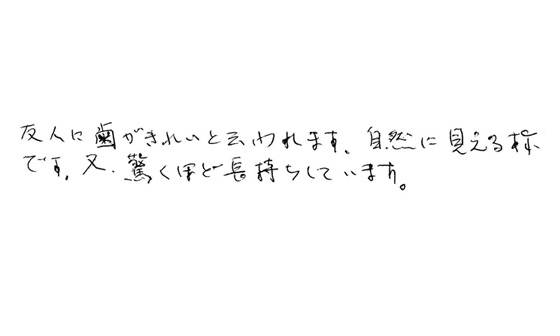 友人に歯がきれいと云われます。自然に見える様
です。又、驚くほど長持ちしています。